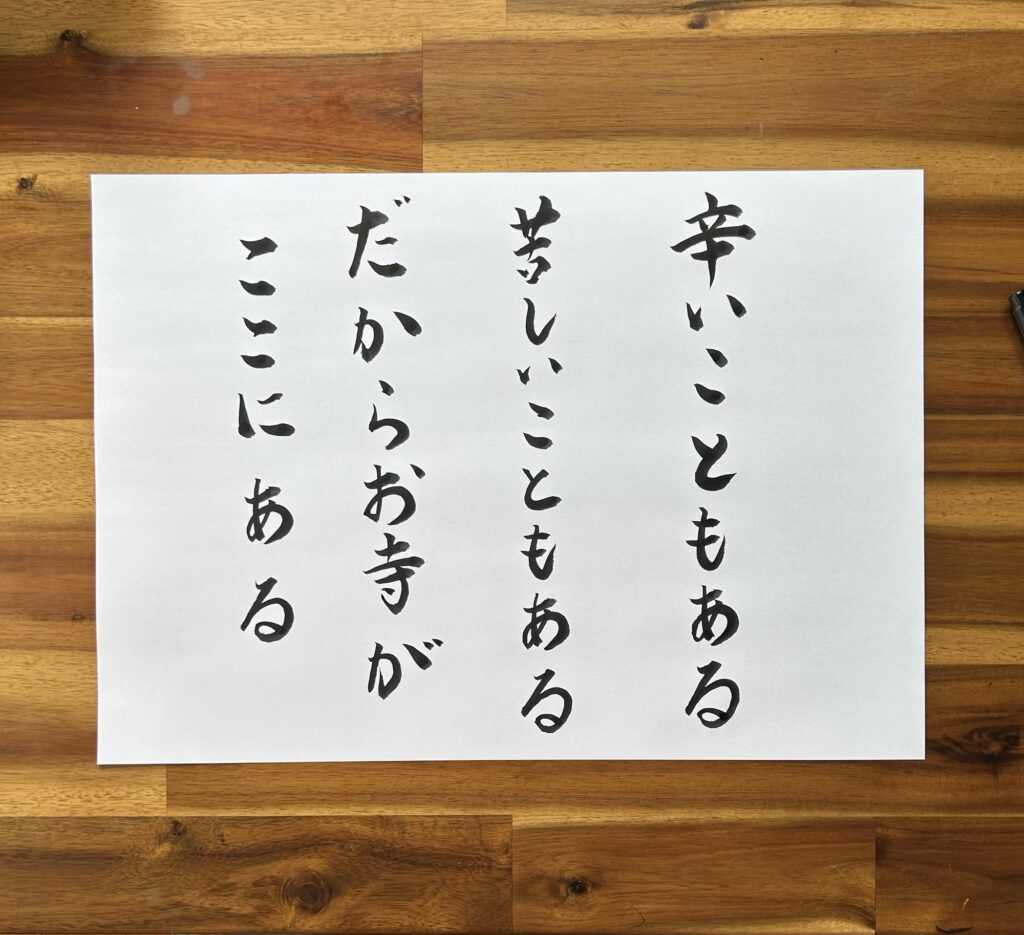 辛いこともある
苦しいこともある
だからお寺が
ここにある